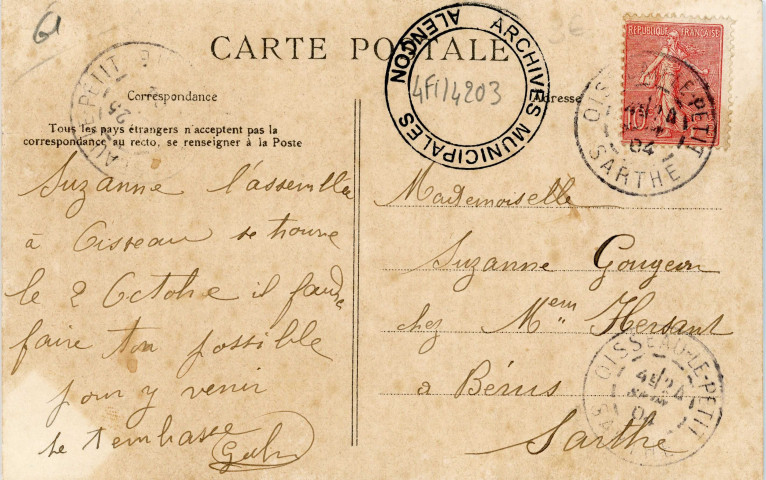 CARTE POSTALE
ARCHIVES MUNICIPALES
ALENÇON
4Fi/4203
REPUBLIQUE FRANÇAISE
10
OISSEAU-LE-PETIT
24
04
SARTHE
Correspondance
Adresse
Tous les pays étrangers n'acceptent pas la
correspondance au recto, se renseigner à la Poste
Suzanne l'assemblée
à Oisseau se trouve
le 2 Octobre il faudra
faire ton possible
pour y venir
je t'embrasse
Mademoiselle
Suzanne Gougeon
chez Mem Hersant
a Bérus
Sarthe
OISSEAU-LE-PETIT
24
04
SARTHE